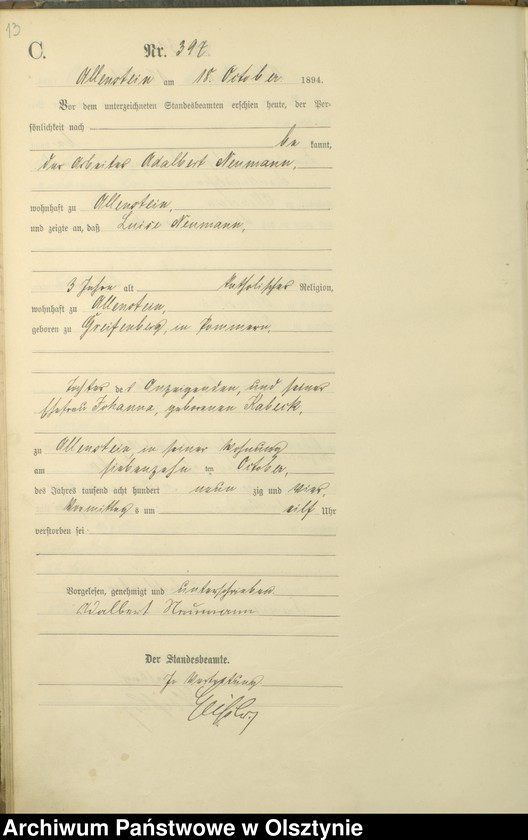 13
C. Nr. 397.
Allenstein am 18. October 1894.
Vor dem unterzeichneten Standesbeamten erschien heute, der Per-
sönlichkeit nach
be kannt,
der Arbeiter Adalbert Neumann,
wohnhaft zu Allenstein,
und zeigte an, daß Luise Neumann,
3 Jahre alt katholischer Religion,
wohnhaft zu Allenstein,
geboren zu Greifenberg, in Pommern,
Tochter des Anzeigenden, und seiner
Ehefrau Johanna, geborenen Kabeck,
zu Allenstein, in seiner Wohnung
am siebenzehn ten October,
des Jahres tausend acht hundert neun zig und vier,
Vormittag s um eilf Uhr
verstorben sei
Vorgelesen, genehmigt und unterschrieben
Adalbert Neumann
Der Standesbeamte.
In Vertretung
Archiwum Państwowe w Olsztynie